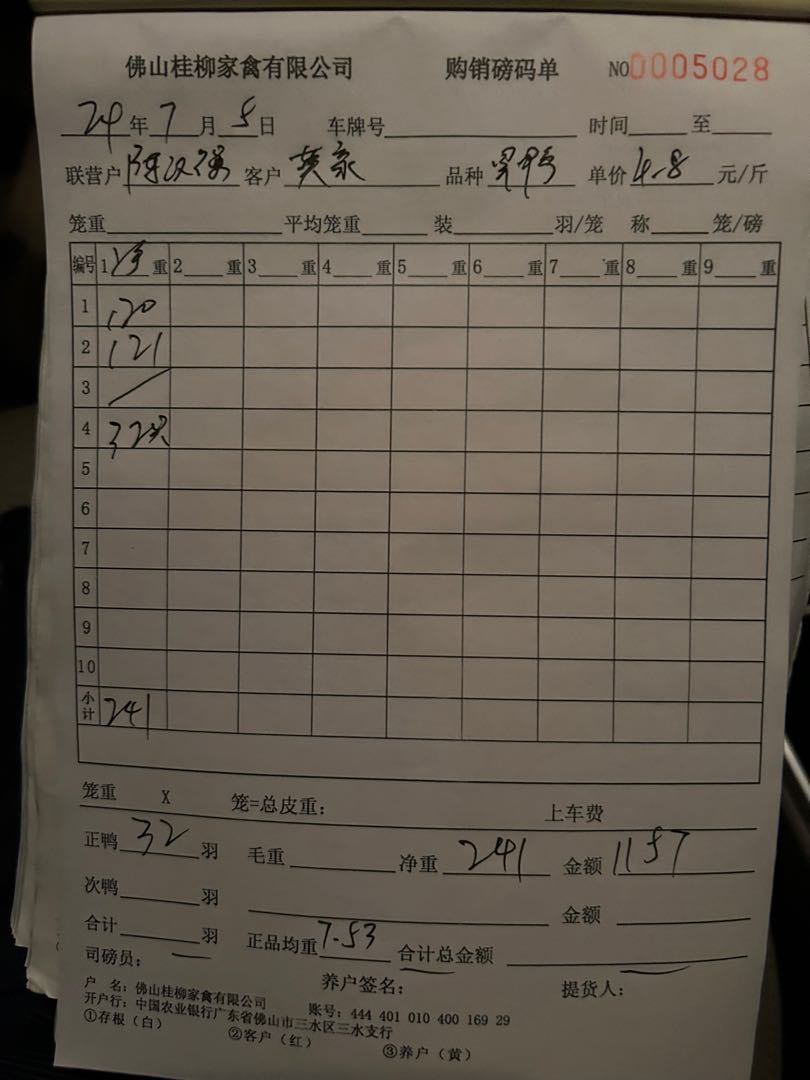 佛山桂柳家禽有限公司 购销磅码单 NO0005028
24年7月5日 车牌号 时间 至
联营户 陈汉强 客户 黄家 品种 单价4.8元/斤
笼重 平均笼重 装 羽/笼 称 笼/磅
编号 1净重 2 重 3 重 4 重 5 重 6 重 7 重 8 重 9 重
1 120
2 121
3 /
4 32只
5
6
7
8
9
10
小计 241
笼重 X 笼=总皮重: 上车费
正鸭32羽 毛重 净重241 金额1157
次鸭 羽 金额
合计 羽 正品均重7.53 合计总金额
司磅员: 养户签名: 提货人:
户 名: 佛山桂柳家禽有限公司
开户行: 中国农业银行广东省佛山市三水区三水支行 账号: 444 401 010 400 169 29
①存根(白) ②客户(红) ③养户(黄)